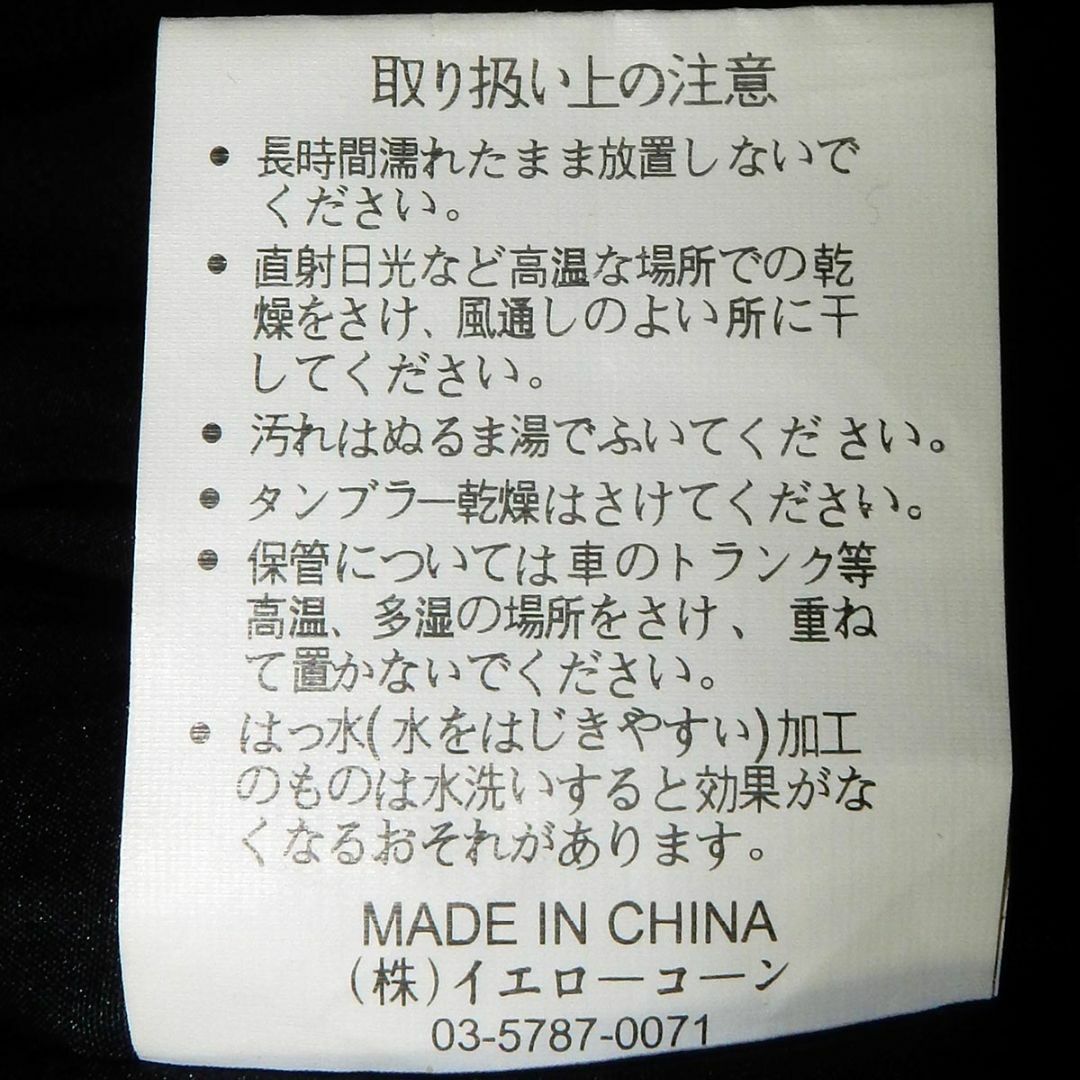 取り扱い上の注意
• 長時間濡れたまま放置しないで
ください。
• 直射日光など高温な場所での乾
燥をさけ、風通しのよい所に干
してください。
• 汚れはぬるま湯でふいてください。
• タンブラー乾燥はさけてください。
• 保管については車のトランク等
高温、多湿の場所をさけ、重ね
て置かないでください。
• はっ水(水をはじきやすい)加工
のものは水洗いすると効果がな
くなるおそれがあります。
MADE IN CHINA
(株)イエローコーン
03-5787-0071